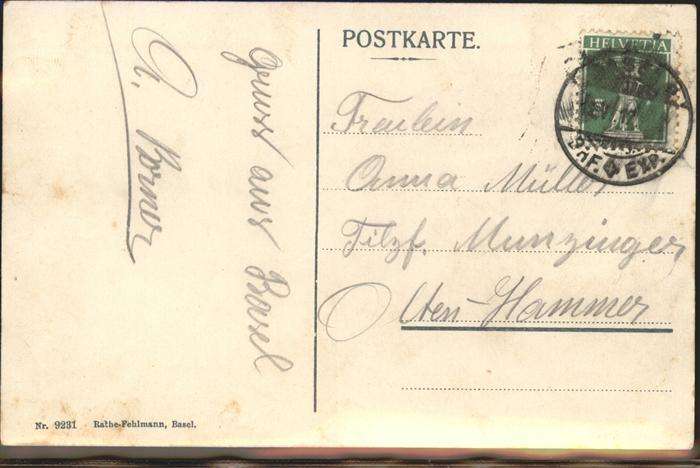 POSTKARTE.
HELVETIA
BRF. EXP.
Fräulein
Anna Müller
Filzf. Munzinger
Olten-Hammer
Gruss aus Basel
Nr. 9231 Rathe-Fehlmann, Basel.